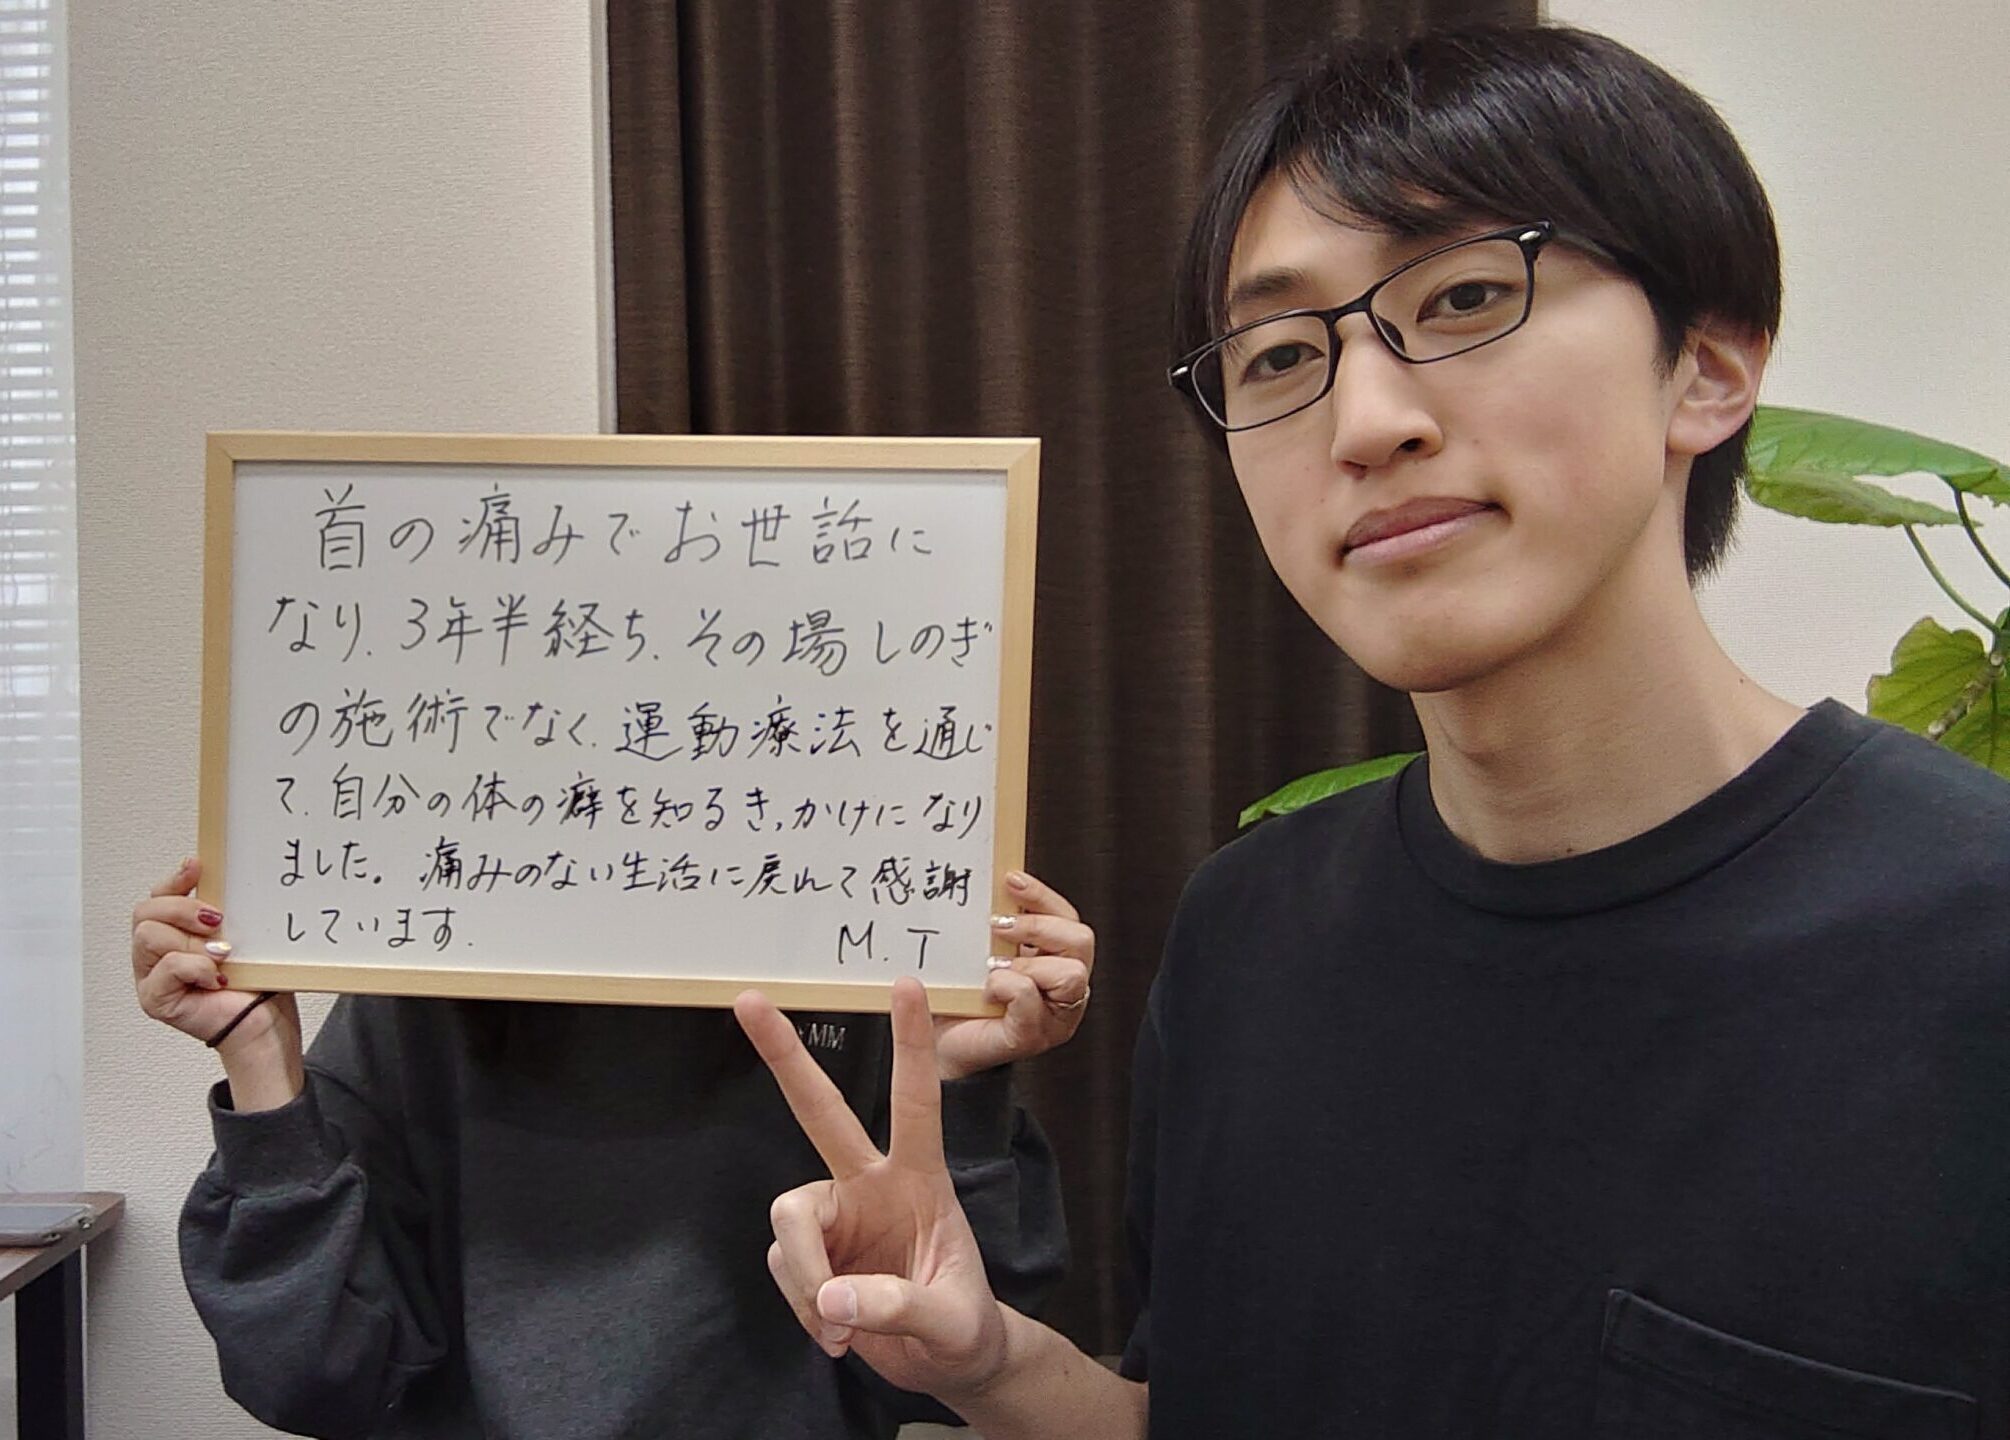 首の痛みでお世話に
なり、3年半経ち、その場しのぎ
の施術でなく、運動療法を通じ
て、自分の体の癖を知るきっかけになり
ました。痛みのない生活に戻れて感謝
しています。
M.T
MM